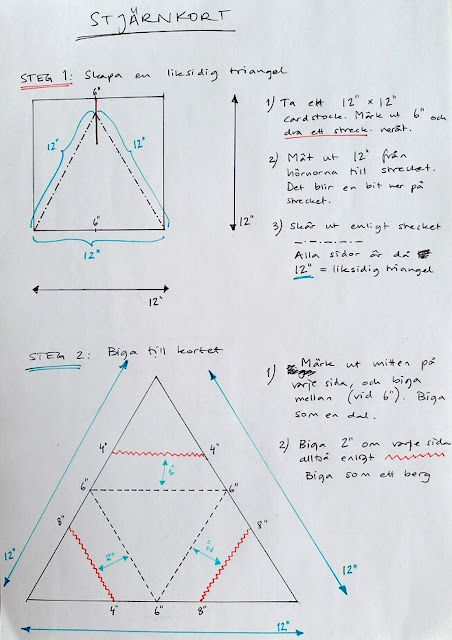 STJÄRNKORT
STEG 1: Skapa en liksidig triangel
6"
12"
12"
6"
12"
12"
12"
1) Ta ett 12" x 12"
cardstock. Märk ut 6" och
dra ett streck neråt.
2) Mät ut 12" från
hörnorna till strecket.
Det blir en bit ner på
strecket.
3) Skär ut enligt strecket
Alla sidor är då
12" = liksidig triangel
STEG 2: Biga till kortet
4"
4"
2"
6"
6"
8"
8"
2"
2"
4"
6"
8"
12"
12"
12"
1) Märk ut mitten på
varje sida, och biga
mellan (vid 6"). Biga
som en dal.
2) Biga 2" om varje sida
alltså enligt
Biga som ett berg